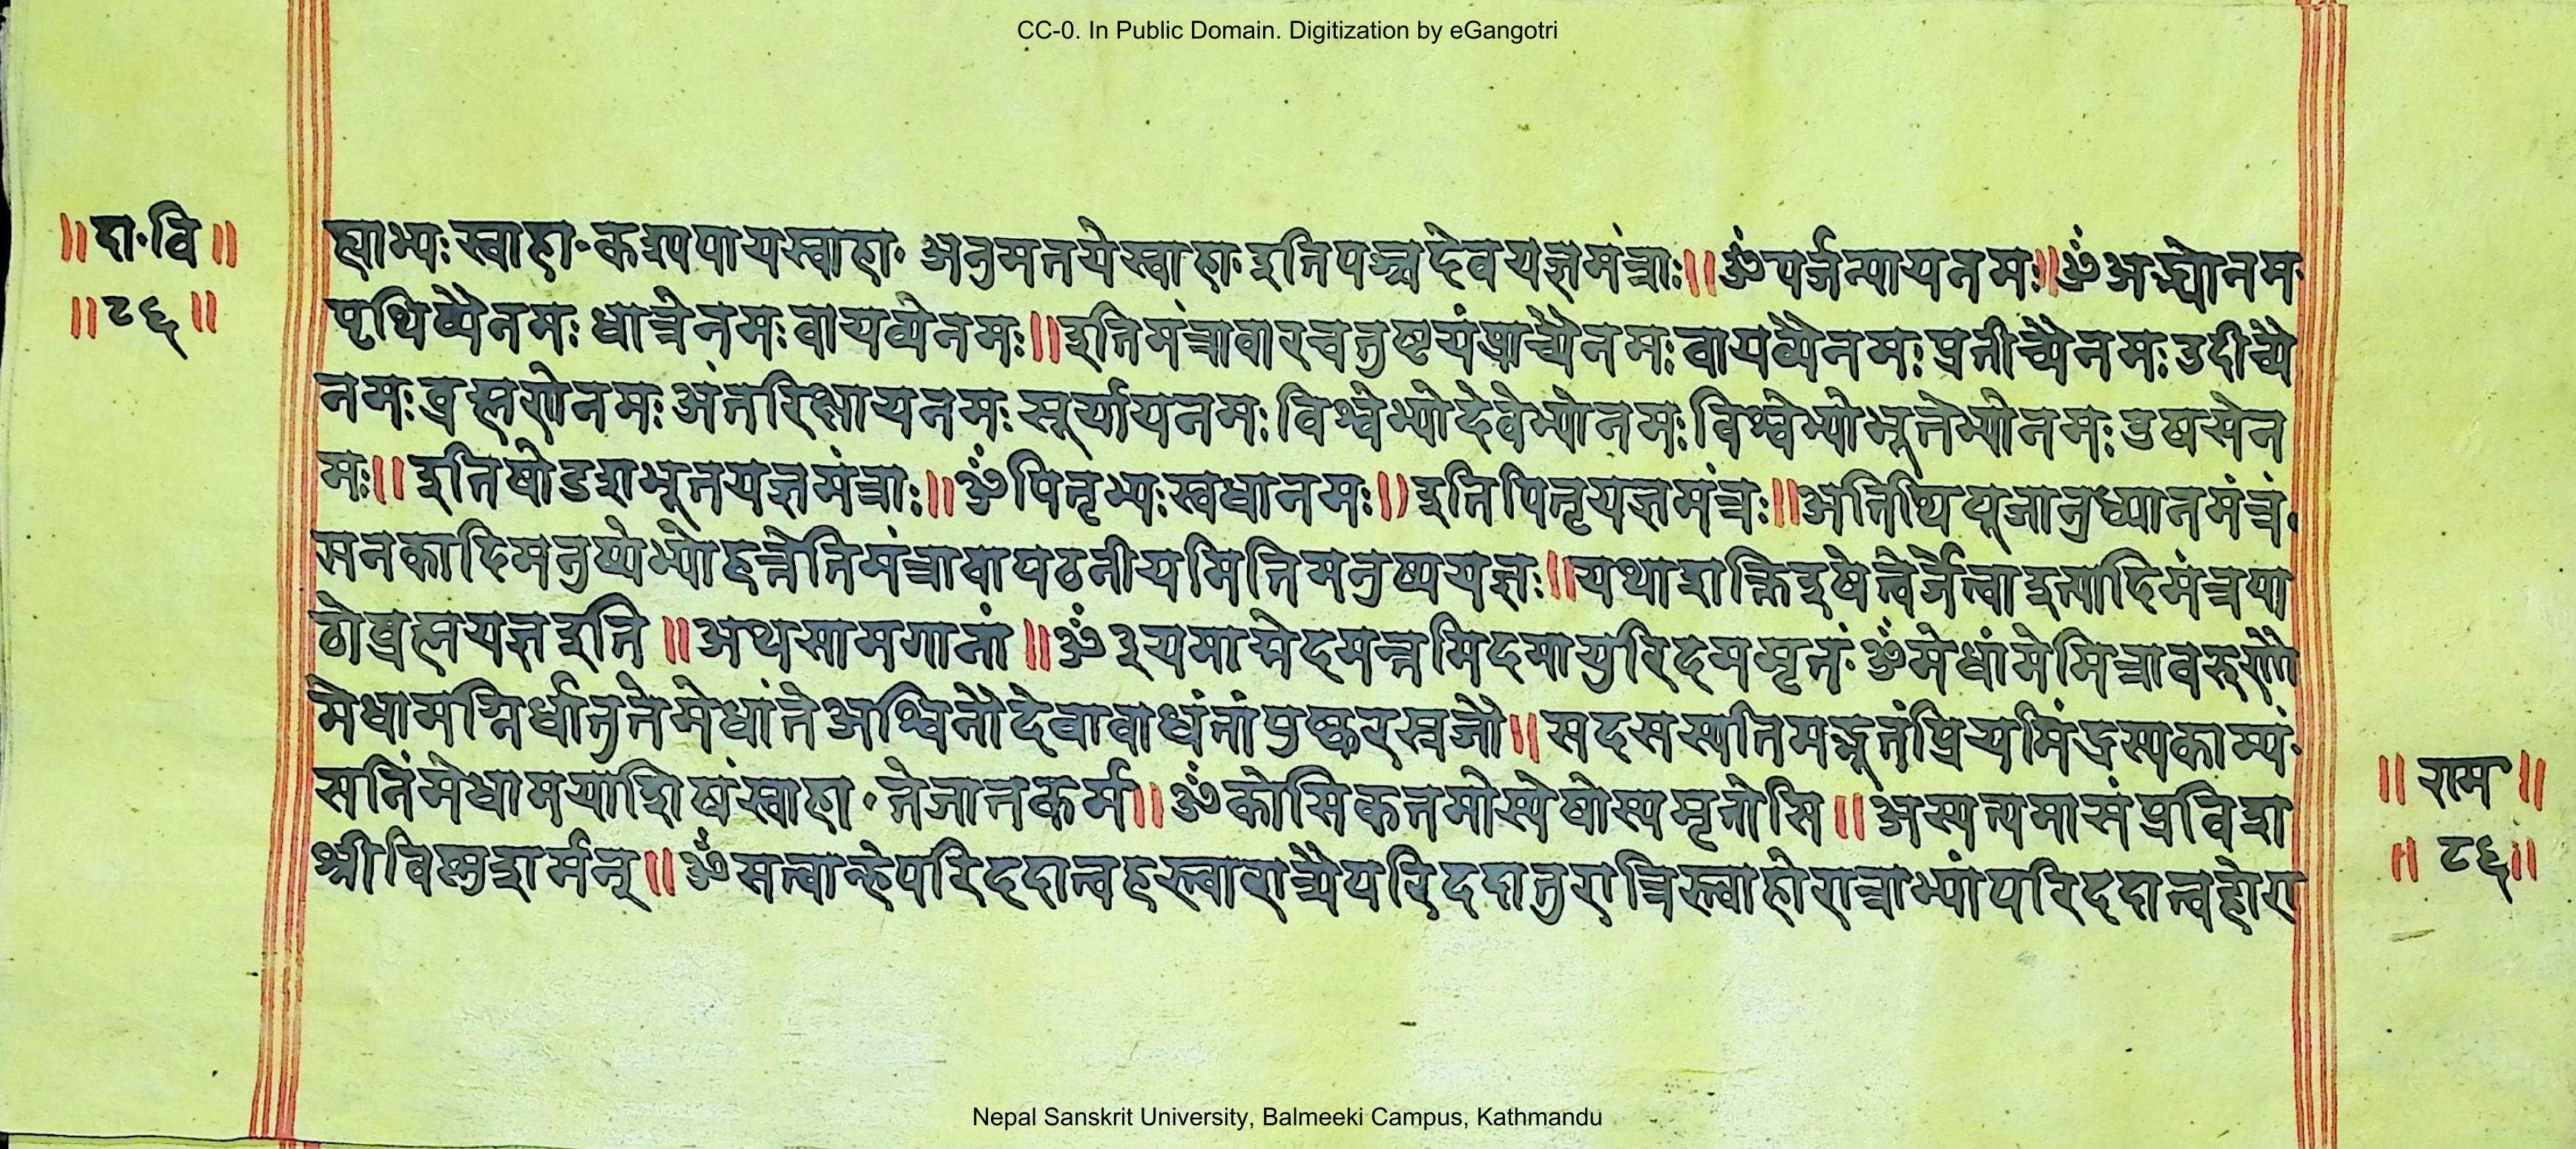 CC-0. In Public Domain. Digitization by eGangotri
॥दा·वि॥
॥८६॥
ह्याभ्यः स्वाहा· कश्यपायस्वाहा· अनुमतयेस्वाहाः इतिपञ्चदेवयज्ञमंत्राः॥ॐपर्जन्यायनमः॥ॐअद्भ्योनमः
पृथिव्यैनमः धात्रेनमः वायव्येनमः॥इतिमंत्रावारचतुष्टयंप्राच्यैनमः वायव्यैनमः प्रतीच्यैनमः उदीच्यै
नमः ब्रह्मणेनमः अंतरिक्षायनमः सूर्यायनमः विश्वेभ्योदेवेभ्योनमः विश्वेभ्योभूतेभ्योनमः उषसेन
मः॥इतिषोडशभूतयज्ञमंत्राः॥ॐपितृभ्यः स्वधानमः॥इतिपितृयज्ञमंत्रः॥अतिथिपूजानुध्यानमंत्रं·
सनकादिमनुष्येभ्योहन्तेतिमंत्रोवापठनीयमितिमनुष्ययज्ञः॥यथाशक्तिइषेत्वेर्जेत्वाइत्यादिमंत्रपा
ठोब्रह्मयज्ञइति॥अथसामगानां॥ॐ३यमाज्ञेदमन्नमिदमायुरिदममृतं·ॐमेधांमेमित्रावरुणौ
मेधामग्निर्धातुतेमेधांतेअश्विनौदेवावाधंतांपुष्करस्रजौ॥सदसस्पतिमद्भूतंप्रियमिंद्रस्यकाम्यं·
सनिंमेधामयाशिषंस्वाहा·तेजातकर्म॥ॐकोसिकतमोस्येषोस्यमृतोसि॥अंस्पत्यमासंप्रविशा
श्रीविष्णुशर्मन्॥ॐसत्वान्हेपरिददात्वहस्त्वारात्र्यैपरिददातुरात्रिस्त्वाहोरात्राभ्यांपरिददात्वहोरा
॥राम॥
॥८६॥
Nepal Sanskrit University, Balmeeki Campus, Kathmandu